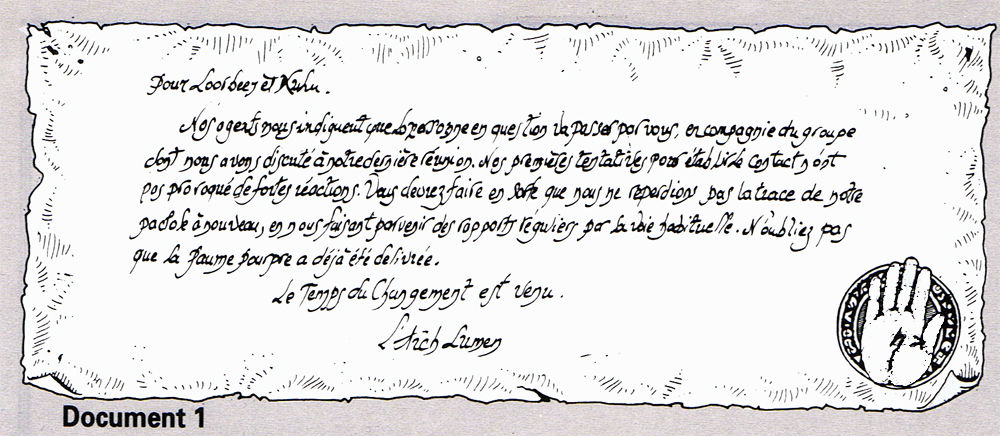 Pour Loorbeer et Kuhn.
Nos agents nous indiquent que la personne en question va passer par vous, en compagnie du groupe
dont nous avons discuté à notre dernière réunion. Nos premières tentatives pour établir le contact n'ont
pas provoqué de fortes réactions. Vous devrez faire en sorte que nous ne reperdions pas la trace de notre
à nouveau, en nous faisant parvenir des rapports réguliers par la voie habituelle. N'oubliez pas
que la Paume pourpre a déjà été délivrée.
Le Temps du Changement est venu.
Lumen
Document 1